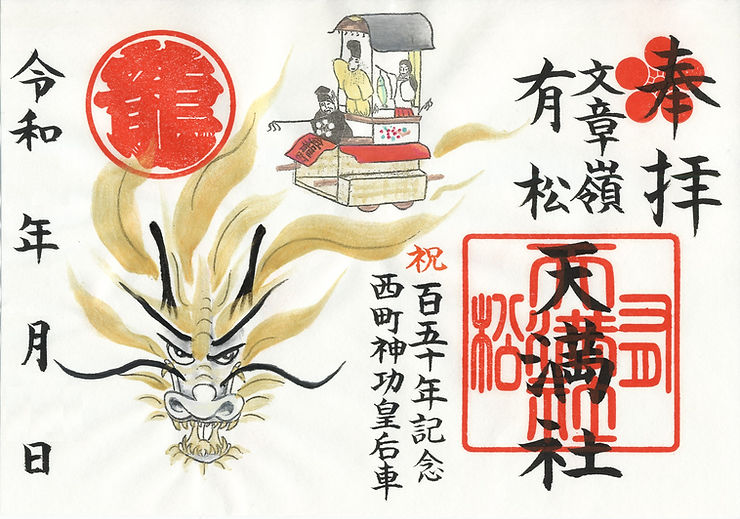 奉拝
文章嶺
有松
天満社
有松天満社
祝
百五十年記念
西町神功皇后車
龍
龍
令和 年 月 日